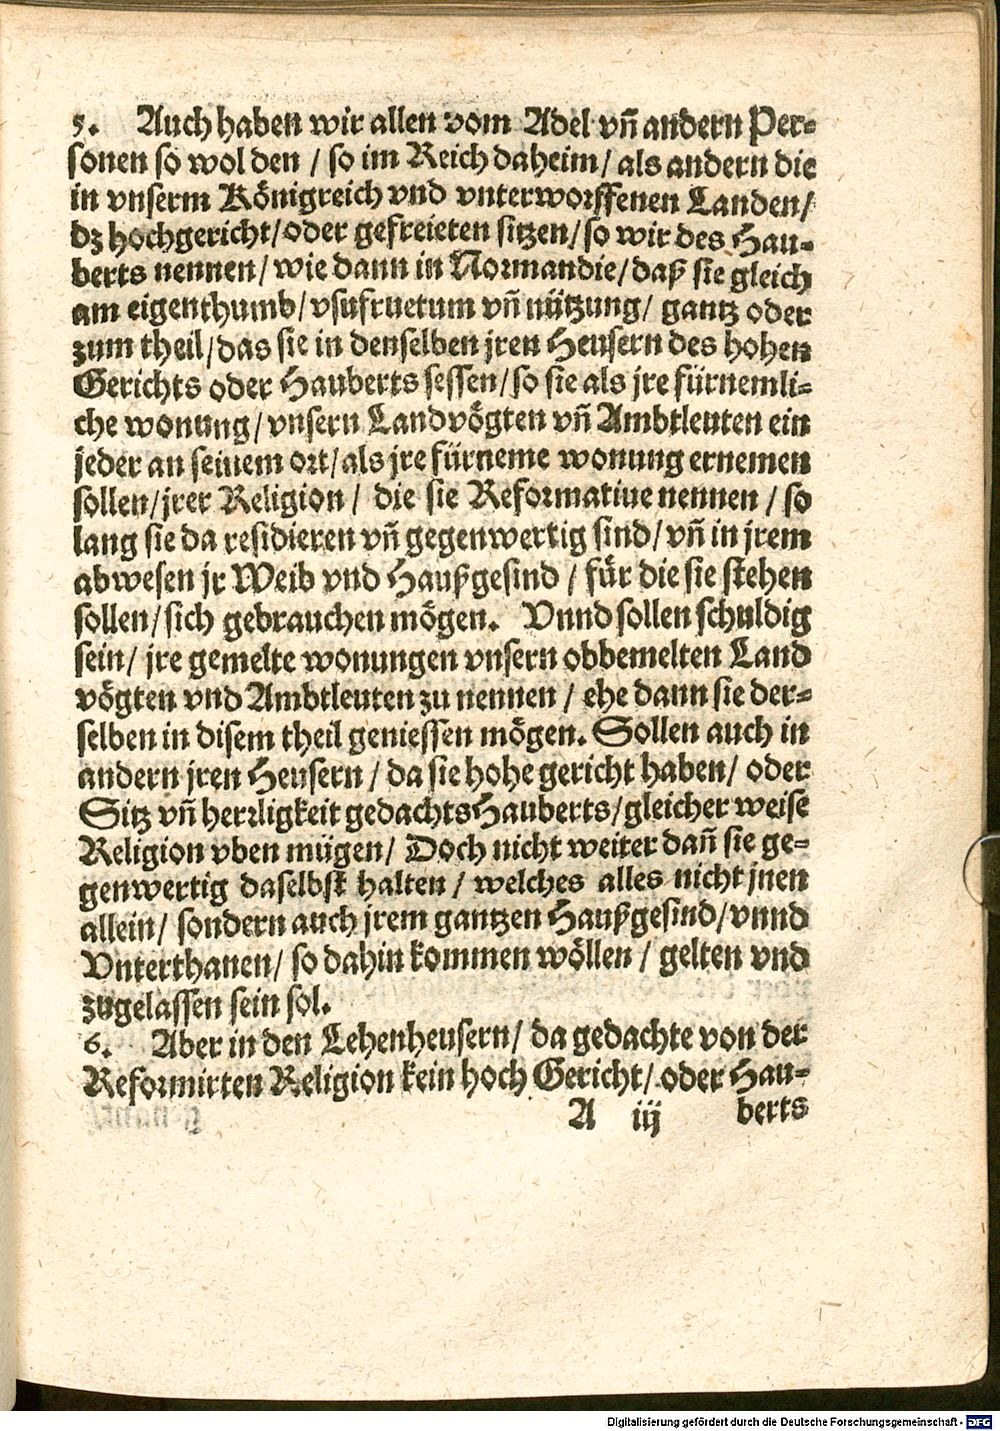 5. Auch haben wir allen vom Adel vn̄ andern Per-
sonen so wol den / so im Reich daheim / als andern die
in vnserm Königreich vnd vnterworffenen Landen /
dz hochgericht / oder gefreieten sitzen / so wir des Hau-
berts nennen / wie dann in Normandie / daß sie gleich
am eigenthumb / vsufructum vn̄ nützung / gantz oder
zum theil / das sie in denselben jren Heusern des hohen
Gerichts oder Hauberts sessen / so sie als jre fürnemli-
che wonung / vnsern Landvögten vn̄ Ambtleuten ein
jeder an seinem ort / als jre fürneme wonung ernemen
sollen / jrer Religion / die sie Reformatiue nennen / so
lang sie da residieren vn̄ gegenwertig sind / vn̄ in jrem
abwesen jr Weib vnd Haußgesind / für die sie stehen
sollen / sich gebrauchen mögen. Vnnd sollen schuldig
sein / jre gemelte wonungen vnsern obbemelten Land
vögten vnd Ambtleuten zu nennen / ehe dann sie der-
selben in disem theil geniessen mögen. Sollen auch in
andern jren Heusern / da sie hohe gericht haben / oder
Sitz vn̄ herrligkeit gedachts Hauberts / gleicher weise
Religion vben mügen / Doch nicht weiter dan̄ sie ge-
genwertig daselbst halten / welches alles nicht jnen
allein / sondern auch jrem gantzen Haußgesind / vnnd
Vnterthanen / so dahin kommen wöllen / gelten vnd
zugelassen sein sol.
6. Aber in den Lehenheusern / da gedachte von der
Reformirten Religion kein hoch Gericht / oder Hau-
A iij berts
Digitalisierung gefördert durch die Deutsche Forschungsgemeinschaft - DFG